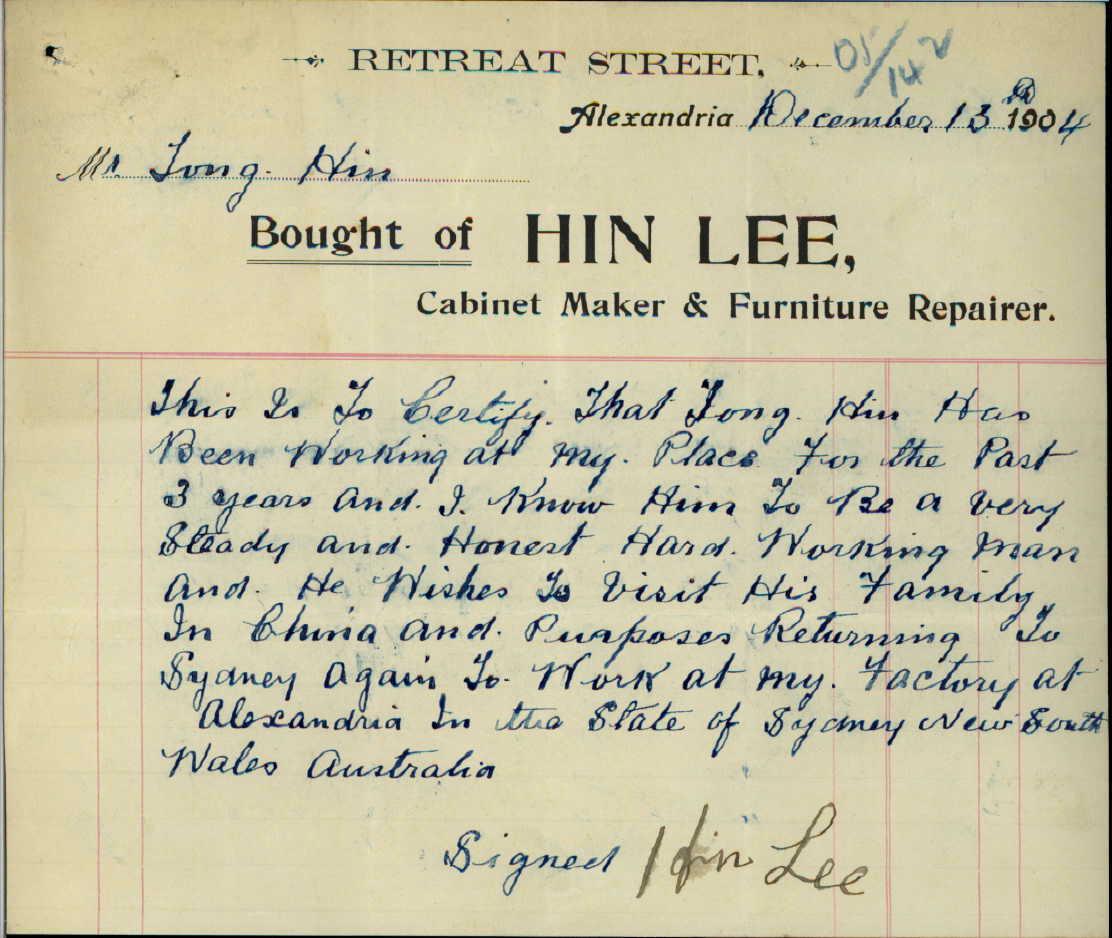 RETREAT STREET,
05/142
Alexandria December 13 1904
Mr Tong. Hin
Bought of HIN LEE,
Cabinet Maker & Furniture Repairer.
This Is To Certify. That Tong. Hin Has
Been Working at my. Place For the Past
3 years and. I. Know Him To Be a very
Steady and. Honest Hard. Working man
and. He Wishes To Visit His Family,
In China and. Purposes Returning To
Sydney Again To. Work at my. Factory at
Alexandria In the State of Sydney New South
Wales Australia
Signed Hin Lee